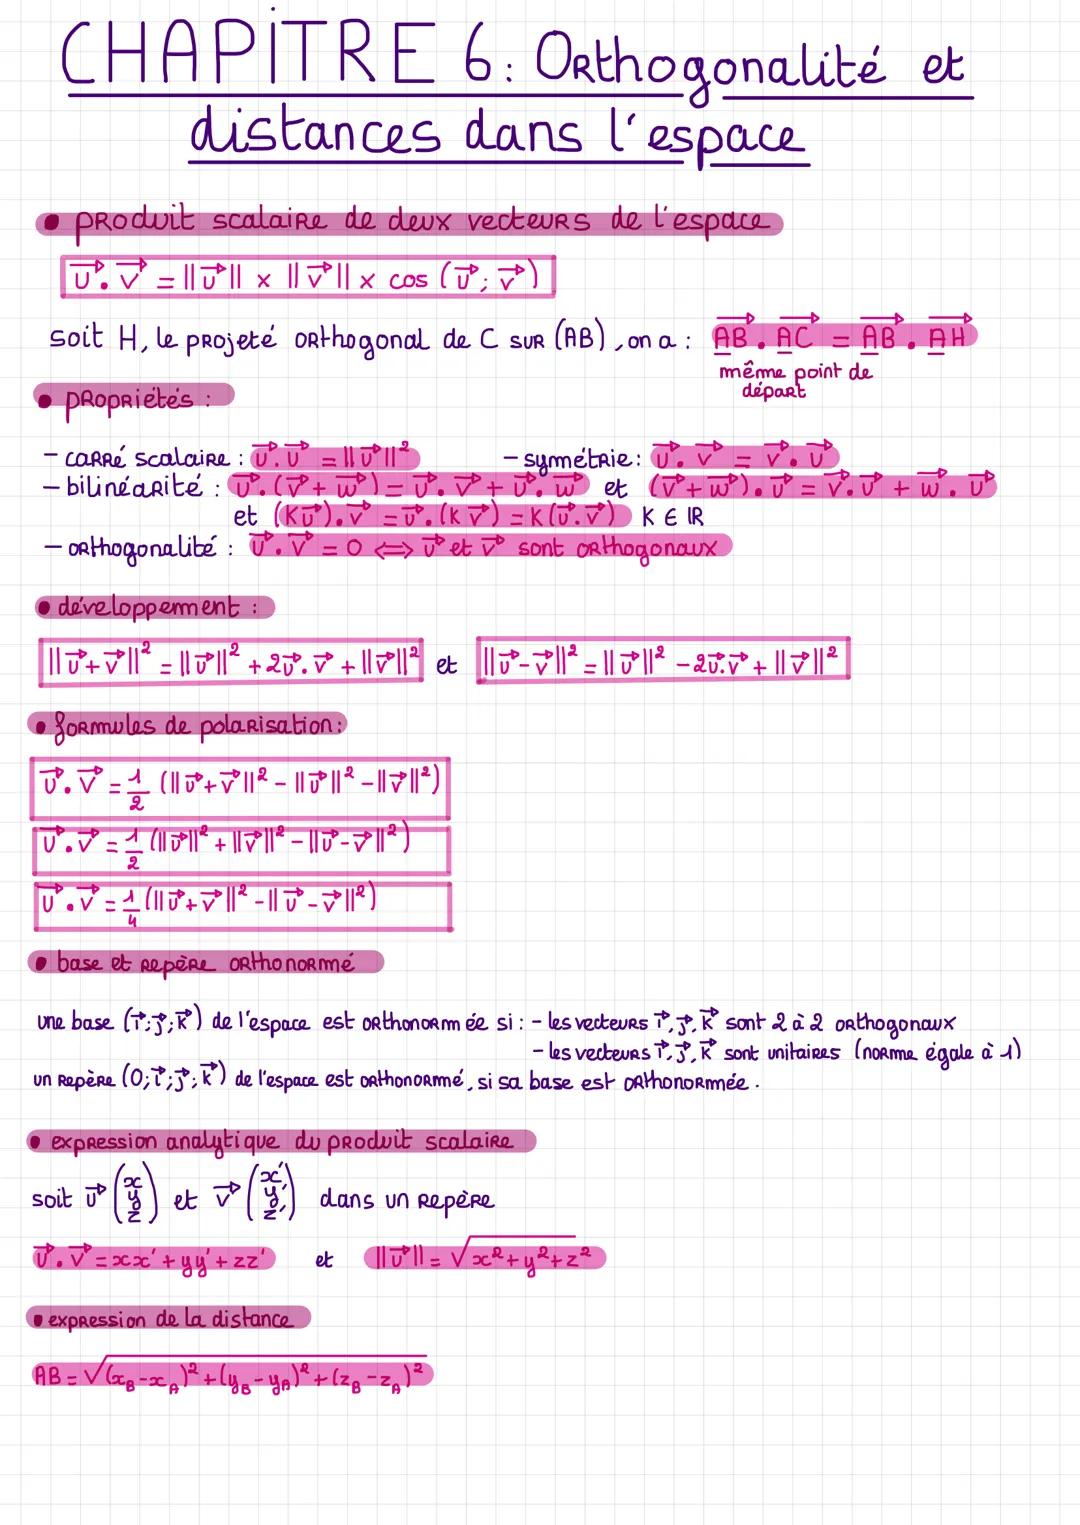 CHAPITRE 6: Orthogonalité et
distances dans l'espace
• produit scalaire de deux vecteurs de l'espace
u⃗.v⃗ = ||u⃗|| × ||v⃗|| × cos (u⃗; v⃗)
soit H, le projeté orthogonal de C sur (AB), on a : AB⃗. AC⃗ = AB⃗. AH⃗
même point de
départ
• propriétés :
- carré scalaire : u⃗.u⃗ = ||u⃗||² - symétrie : u⃗. v⃗ = v⃗. u⃗
- bilinéarité : u⃗.(v⃗ + w⃗) = u⃗. v⃗ + u⃗. w⃗ et (v⃗ + w⃗). u⃗ = v⃗. u⃗ + w⃗. u⃗
et (K u⃗). v⃗ = u⃗. (K v⃗) = K(u⃗.v⃗) K ∈ IR
- orthogonalité : u⃗. v⃗ = 0 ⟺ u⃗ et v⃗ sont orthogonaux
• développement :
||u⃗ + v⃗||² = ||u⃗||² + 2u⃗. v⃗ + ||v⃗||² et ||u⃗ - v⃗||² = ||u⃗||² - 2u⃗.v⃗ + ||v⃗||²
• formules de polarisation :
u⃗. v⃗ = 1/2 (||u⃗ + v⃗||² - ||u⃗||² - ||v⃗||²)
u⃗.v⃗ = 1/2 (||u⃗||² + ||v⃗||² - ||u⃗ - v⃗||²)
u⃗.v⃗ = 1/4 (||u⃗ + v⃗||² - ||u⃗ - v⃗||²)
• base et repère orthonormé
une base (i⃗; j⃗; k⃗) de l'espace est orthonormée si : - les vecteurs i⃗, j⃗, k⃗ sont 2 à 2 orthogonaux
- les vecteurs i⃗, j⃗, k⃗ sont unitaires (norme égale à 1)
un repère (O; i⃗; j⃗; k⃗) de l'espace est orthonormé, si sa base est orthonormée.
• expression analytique du produit scalaire
soit u⃗ (x y z) et v⃗ (x' y' z') dans un repère
u⃗. v⃗ = xx' + yy' + zz' et ||u⃗|| = √(x² + y² + z²)
• expression de la distance
AB = √((x_B - x_A)² + (y_B - y_A)² + (z_B - z_A)²)